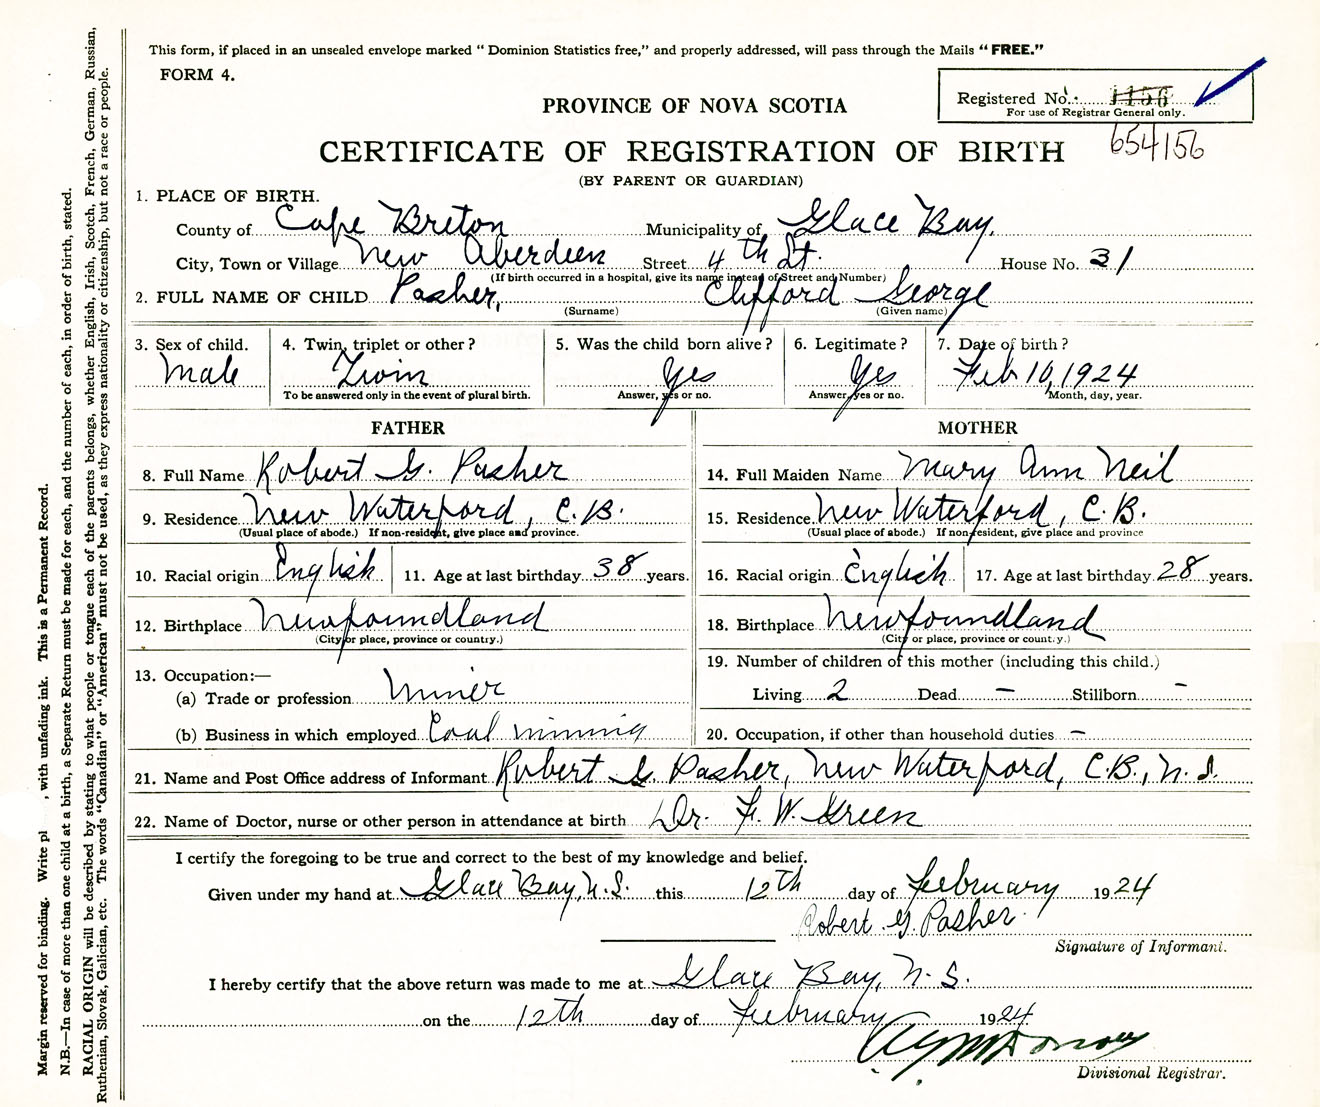 This form, if placed in an unsealed envelope marked "Dominion Statistics free," and properly addressed, will pass through the Mails "FREE."
FORM 4.
Registered No. 1156
For use of Registrar General only.
654156
PROVINCE OF NOVA SCOTIA
CERTIFICATE OF REGISTRATION OF BIRTH
(BY PARENT OR GUARDIAN)
1. PLACE OF BIRTH.
County of Cape Breton Municipality of Glace Bay.
City, Town or Village New Aberdeen Street 4th St. House No. 31
(If birth occurred in a hospital, give its name instead of Street and Number)
2. FULL NAME OF CHILD Pasher, Clifford George
(Surname) (Given name)
3. Sex of child. Male
4. Twin, triplet or other? Twin
To be answered only in the event of plural birth.
5. Was the child born alive? Yes
Answer, yes or no.
6. Legitimate? Yes
Answer, yes or no.
7. Date of birth? Feb 10, 1924
Month, day, year.
FATHER
8. Full Name Robert G. Pasher
9. Residence New Waterford, C.B.
(Usual place of abode.) If non-resident, give place and province.
10. Racial origin English 11. Age at last birthday 38 years.
12. Birthplace Newfoundland
(City or place, province or country.)
13. Occupation:—
(a) Trade or profession Miner
(b) Business in which employed Coal mining
MOTHER
14. Full Maiden Name Mary Ann Neil
15. Residence New Waterford, C.B.
(Usual place of abode.) If non-resident, give place and province
16. Racial origin English 17. Age at last birthday 28 years.
18. Birthplace Newfoundland
(City or place, province or country.)
19. Number of children of this mother (including this child.)
Living 2 Dead — Stillborn —
20. Occupation, if other than household duties —
21. Name and Post Office address of Informant Robert G. Pasher, New Waterford, C.B., N.S.
22. Name of Doctor, nurse or other person in attendance at birth Dr. F. W. Green
I certify the foregoing to be true and correct to the best of my knowledge and belief.
Given under my hand at Glace Bay, N.S. this 12th day of February 1924
Robert G. Pasher
Signature of Informant.
I hereby certify that the above return was made to me at Glace Bay, N.S.
on the 12th day of February 1924
Divisional Registrar.
Margin reserved for binding. Write pl , with unfading ink. This is a Permanent Record.
N.B.—In case of more than one child at a birth, a Separate Return must be made for each, and the number of each, in order of birth, stated.
RACIAL ORIGIN will be described by stating to what people or tongue each of the parents belongs, whether English, Irish, Scotch, French, German, Russian,
Ruthenian, Slovak, Galician, etc. The words "Canadian" or "American" must not be used, as they express nationality or citizenship, but not a race or people.